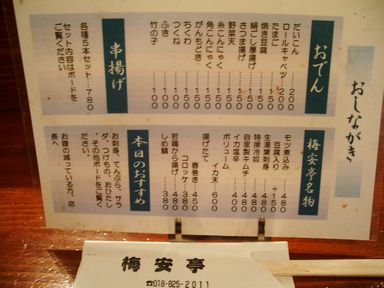 おしながき
おでん
だいこん 200
ロールキャベツ 200
たまご 100
焼き豆腐 150
絹こし厚揚げ 150
さつま揚げ 150
野菜天 150
糸こんにゃく 150
角こんにゃく 150
がんもどき 150
ちくわ 150
つくね 150
ふき 150
竹の子 100
串揚げ
各種5本セット 780
セット内容はボードを
ご覧ください
梅安亭名物
モツ煮込み 480
豆腐入り +150
生湯葉刺身 480
特撰冷奴 480
自家製キムチ 480
イカ塩辛 400
ボリューム
イカ天 600
揚げたて
春巻き 450
コロッケ 380
若鶏から揚げ 480
しめ鯖 380
本日のおすすめ
お刺身、てんぷら、サラ
ダ、つけもの、おひたし
、その他ボードをご覧く
ださい
お腹の減っている方、店
長へ
梅安亭
☎018-825-2011